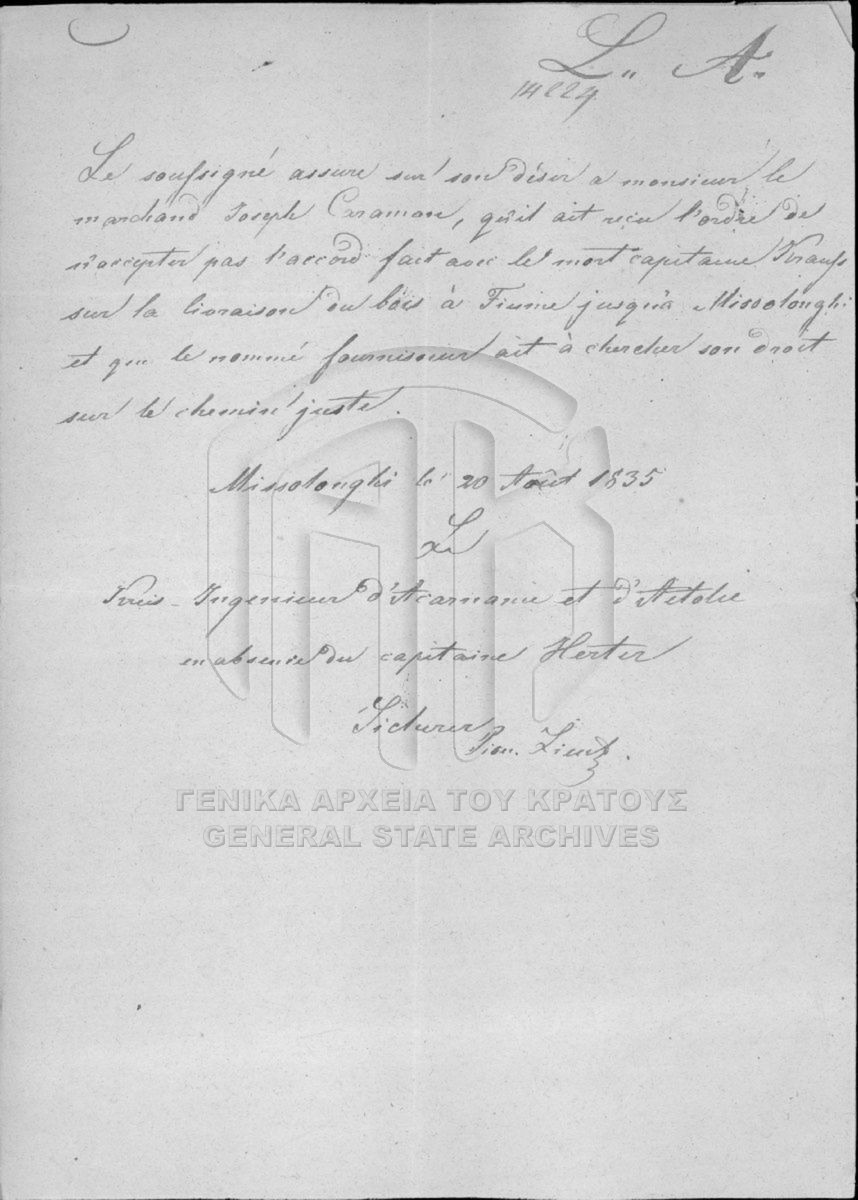 L. A.
14224
Le soussigné assure sur son désir a monsieur le
marchand Joseph Caraman, qu'il ait reçu l'ordre de
n'accepter pas l'accord fait avec le mort capitaine Krauss
sur la livraison du bois à Fiume jusqu'à Missolonghi
et que le nommé fournisseur ait à chercher son droit
sur le chemin juste.
Missolonghi le 20 Août 1835
Le
Kreis-Ingenieur d'Acarnanie et d'Aetolie
en absence du capitaine Herter
Pion. Lieut.
ΓΕΝΙΚΑ ΑΡΧΕΙΑ ΤΟΥ ΚΡΑΤΟΥΣ
GENERAL STATE ARCHIVES